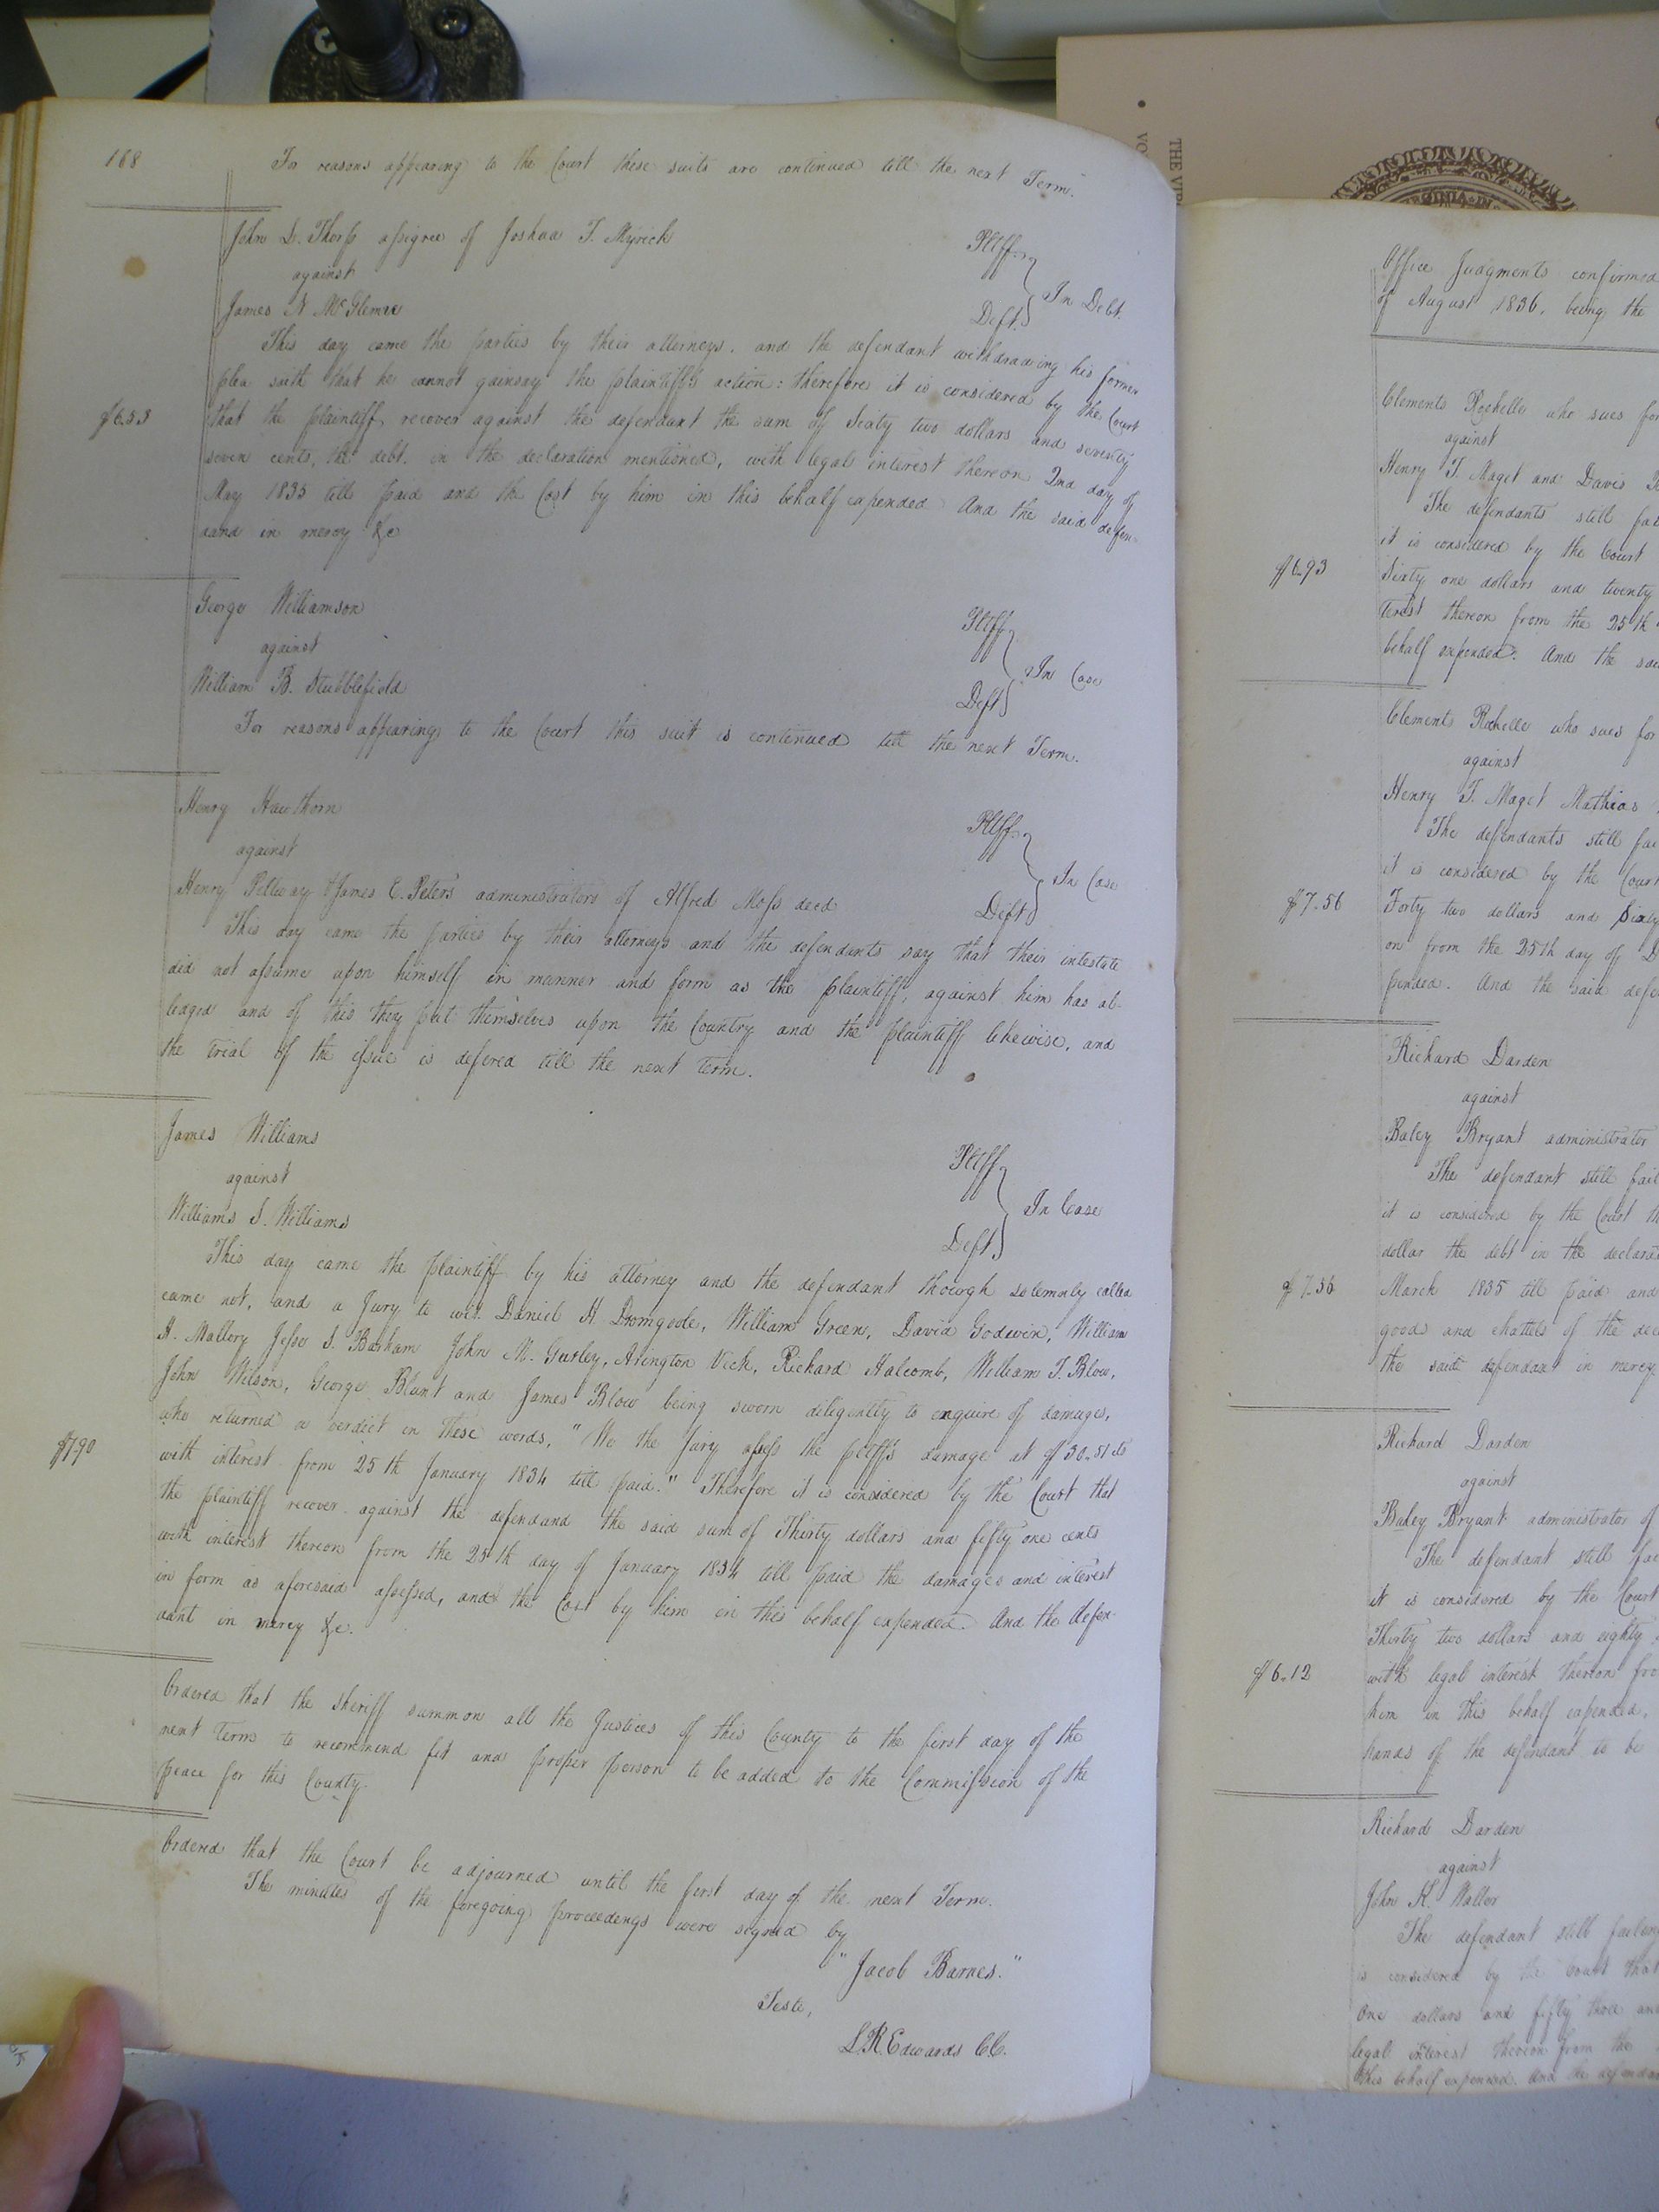 188
For reasons appearing to the Court these suits are continued till the next Term.
John D. Thorp assignee of Joshua T. Myrick Pltff.
against In Debt.
James N McLemore Deft.
This day came the parties by their attorneys, and the defendant withdrawing his former
plea saith that he cannot gainsay the plaintiff's action: therefore it is considered by the Court
$6.53 that the plaintiff recover against the defendant the sum of Sixty two dollars and seventy
seven cents, the debt in the declaration mentioned, with legal interest thereon 2nd day of
May 1835 till paid and the Cost by him in this behalf expended And the said defen-
dand in mercy &c
George Williamson Pltff
against In Case
William B. Stubblefield Deft
For reasons appearing to the Court this suit is continued till the next Term.
Henry Hawthorn Pltff.
against In Case
Henry Pettway & James E. Peters administrators of Alfred Moss decd Deft
This day came the parties by their attorneys and the defendants say that their intestate
did not assume upon himself in manner and form as the plaintiff, against him has al-
leaged and of this they put themselves upon the Country and the plaintiff likewise, and
the trial of the issue is defered till the next term.
James Williams Pltff
against In Case
Williams S. Williams Deft
This day came the plaintiff by his attorney and the defendant though solemnly called
came not, and a Jury to wit. Daniel H Dromgoole, William Green, David Godwin, William
H. Mallory Jesse S. Barham John M. Gurley, Arington Vick, Richard Halcomb, William T. Blow,
John Wilson, George Blunt and James Blow being sworn diligently to enquire of damages,
who returned a verdict in these words, "We the Jury assess the pltff's damage at $30.51 cts
$7.90 with interest from 25th January 1834 till paid." Therefore it is considered by the Court that
the plaintiff recover against the defendand the said sum of Thirty dollars and fifty one cents
with interest thereon from the 25th day of January 1834 till paid the damages and interest
in form as aforesaid assessed, and the Cost by him in this behalf expended. And the defen-
dant in mercy &c.
Ordered that the Sheriff summon all the Justices of this County to the first day of the
next Term to recommend fit and proper person to be added to the Commission of the
peace for this County.
Ordered that the Court be adjourned until the first day of the next Term.
The minutes of the foregoing proceedings were signed by
"Jacob Barnes."
Teste,
L.R. Edwards CC.
THE VIR
VO
GINIA IN
Office Judgments confirmed
of August 1836, being the
Clements Rochelle who sues for
against
Henry T. Maget and Davis
The defendants still fai
it is considered by the Court
$6.93 Sixty one dollars and twenty
terest thereon from the 25th
behalf expended. And the sai
Clements Rochelle who sues for
against
Henry T. Maget Mathias
The defendants still fai
it is considered by the Court
$7.56 Forty two dollars and Sixty
on from the 25th day of D
pended. And the said defe
Richard Darden
against
Baley Bryant administrator
The defendant still fail
it is considered by the Court th
dollar the debt in the declarat
$7.56 March 1835 till paid and
good and chattels of the dec
the said defendant in mercy
Richard Darden
against
Baley Bryant administrator of
The defendant still fai
it is considered by the Court
Thirty two dollars and eighty
$6.12 with legal interest thereon fro
him in this behalf expended,
hands of the defendant to be
Richard Darden
against
John K. Waller
The defendant still failing
is considered by the Court that
One dollars and fifty three an
legal interest thereon from the
this behalf expended. And the defendan